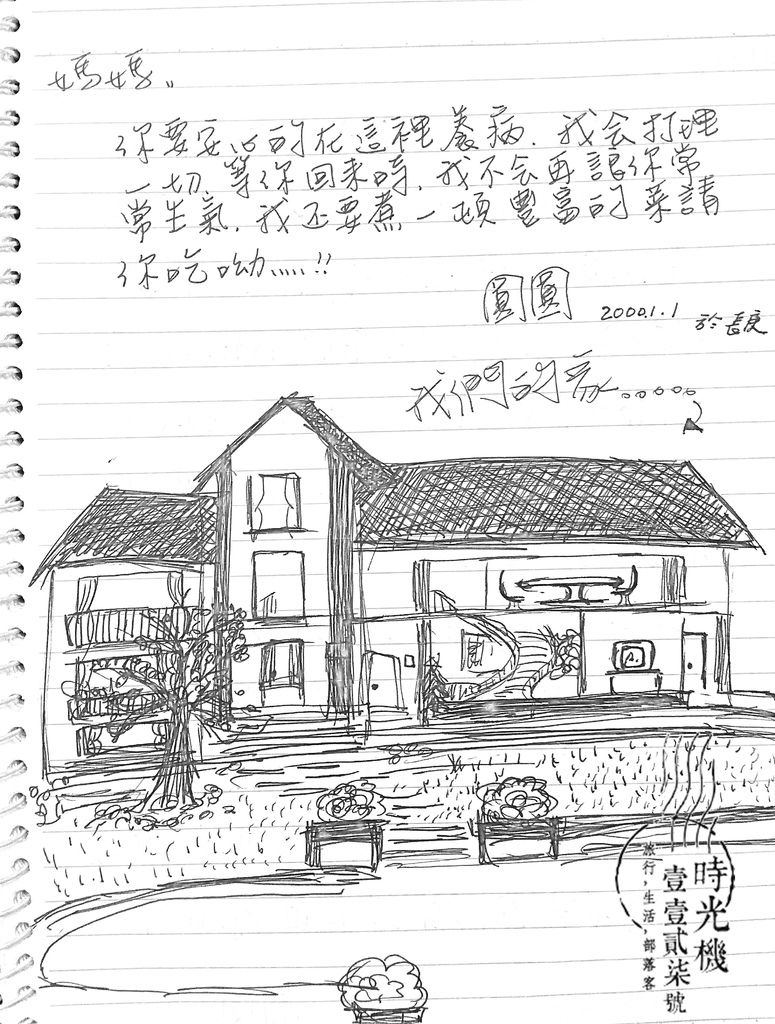 媽媽..
你要安心的在這裡養病. 我会打理
一切. 等你回來時, 我不会再讓你常
常生氣. 我还要煮一頓豐富的菜請
你吃呦.....!!
圓圓 2000.1.1 於長庚
我們的家......
時光機
壹壹貳柒號
旅行,生活,部落客